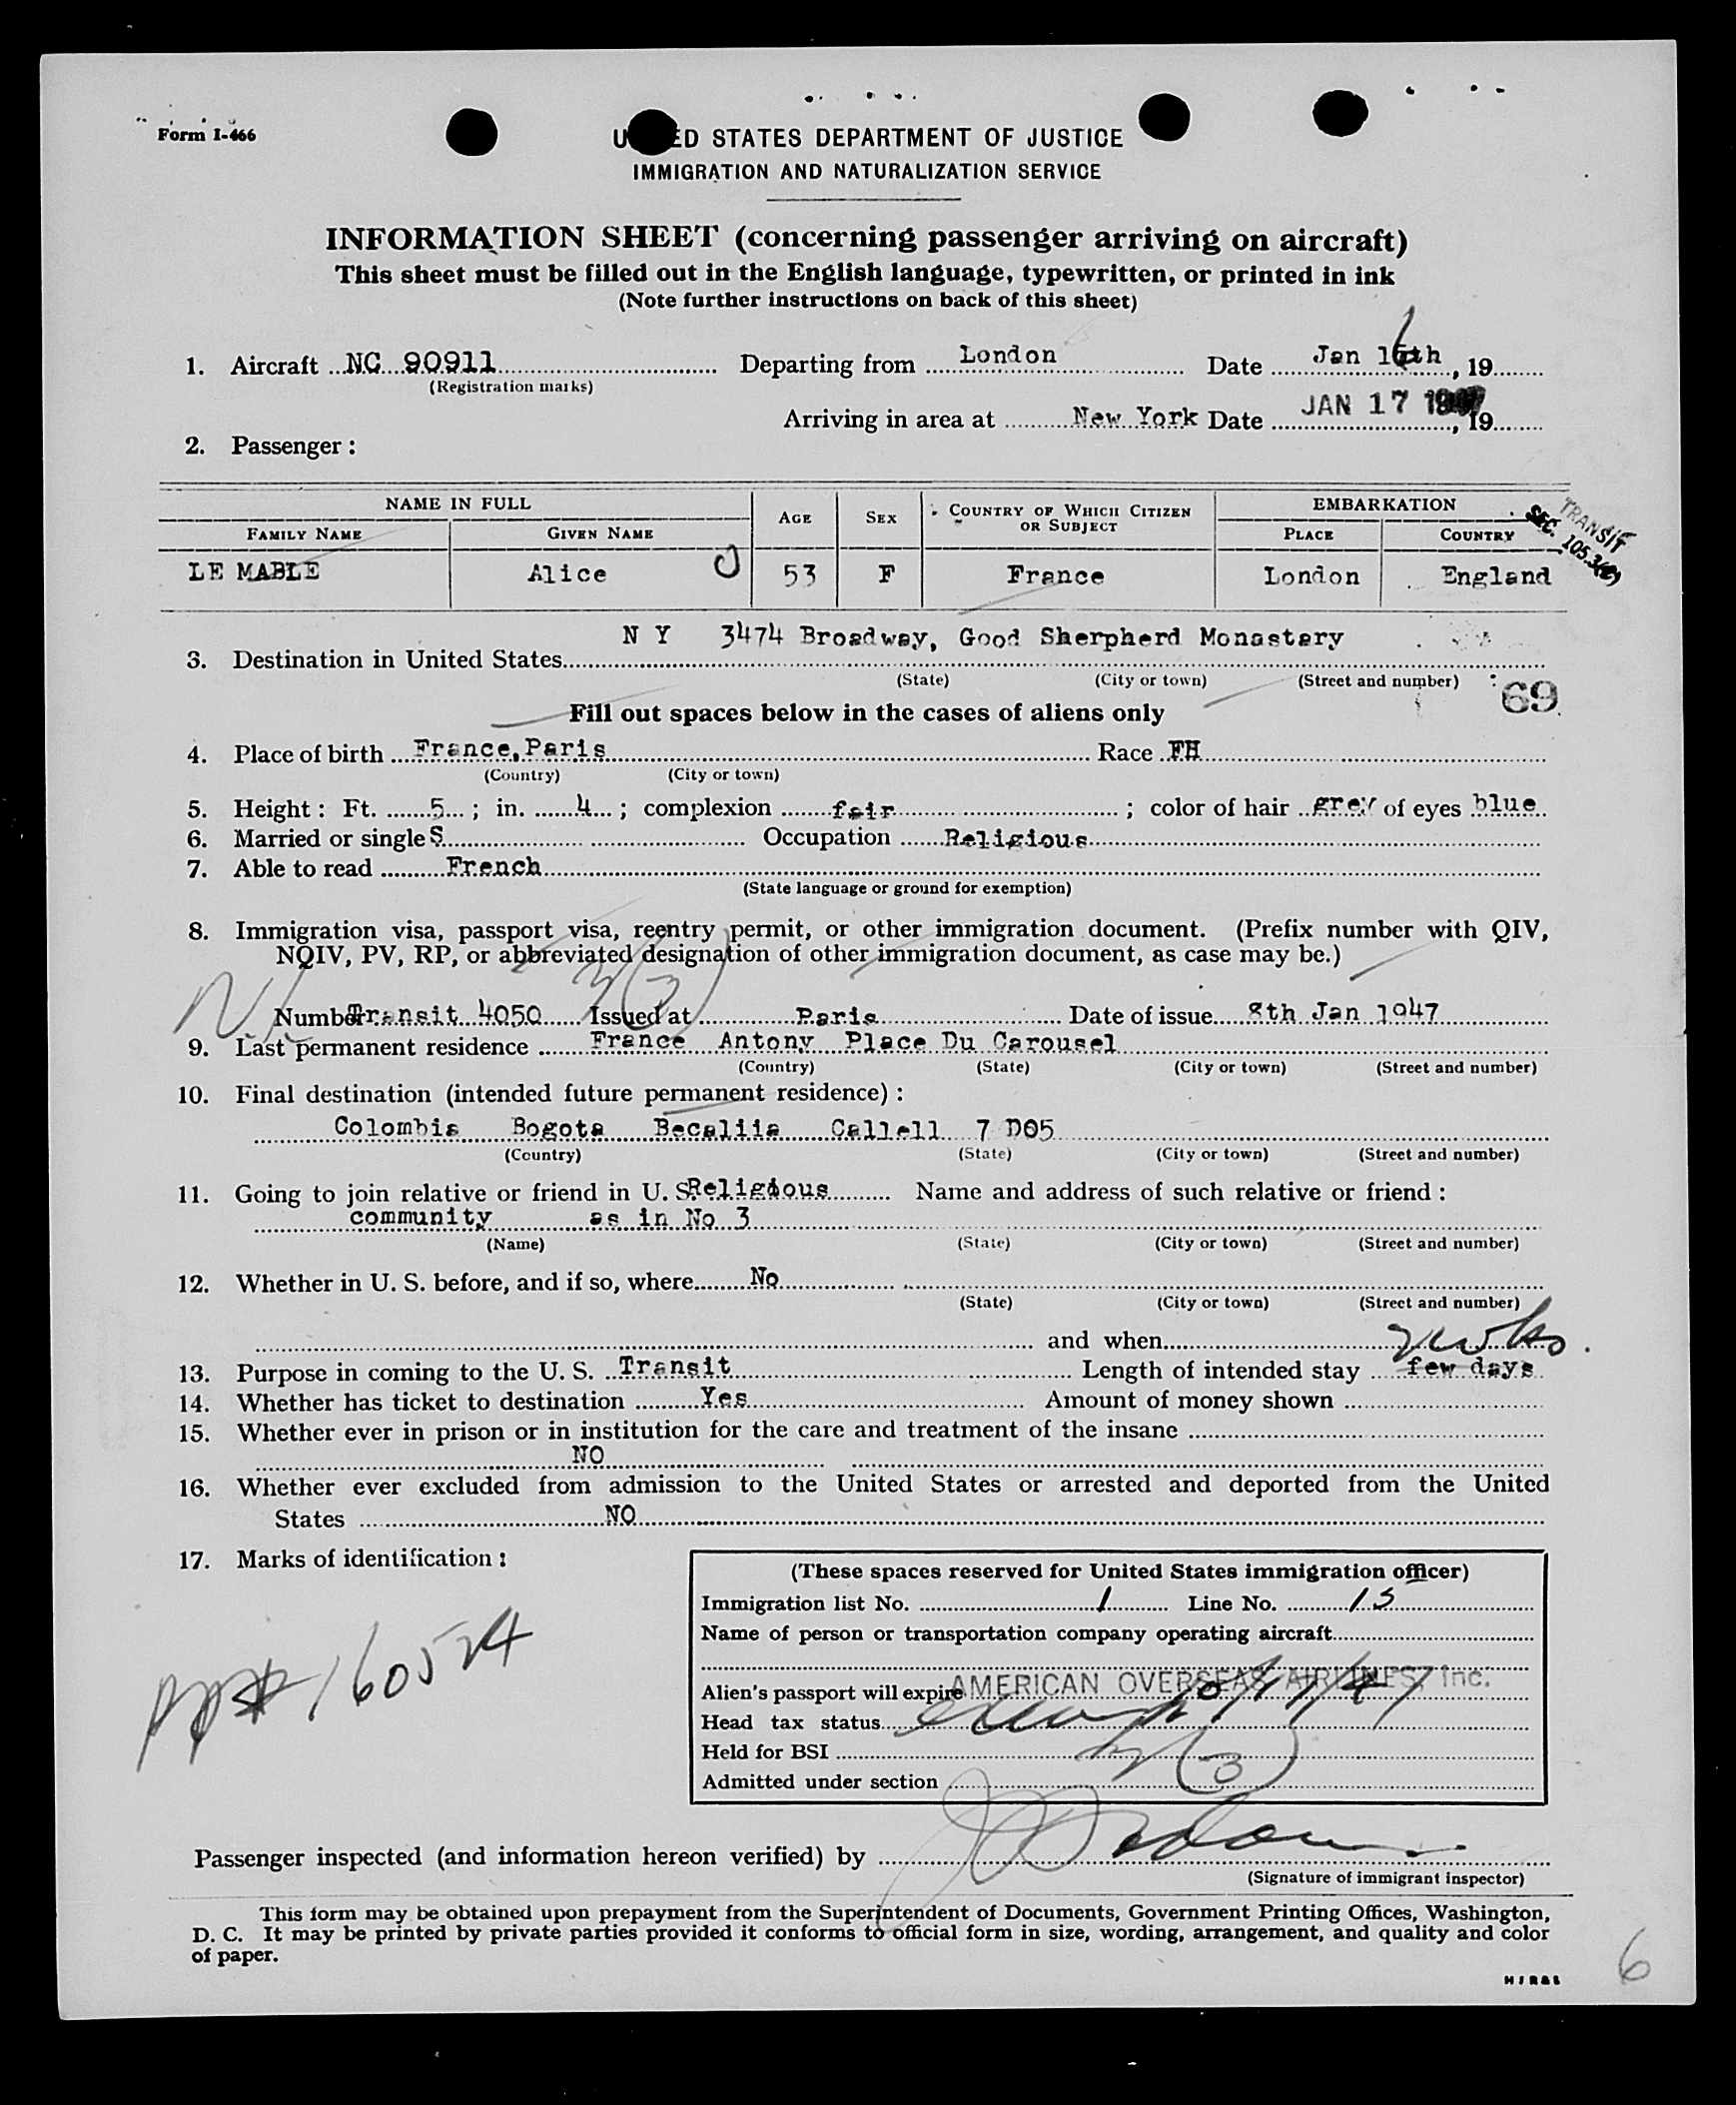 Form I-466
U ED STATES DEPARTMENT OF JUSTICE
IMMIGRATION AND NATURALIZATION SERVICE
INFORMATION SHEET (concerning passenger arriving on aircraft)
This sheet must be filled out in the English language, typewritten, or printed in ink
(Note further instructions on back of this sheet)
1. Aircraft NC 90911 Departing from London Date Jan 16th, 19
(Registration marks)
Arriving in area at New York Date JAN 17 1947, 19
2. Passenger:
NAME IN FULL AGE SEX COUNTRY OF WHICH CITIZEN OR SUBJECT EMBARKATION
FAMILY NAME GIVEN NAME PLACE COUNTRY
TRANSIT
SEC. 105.3(2)
LE MABLE Alice 53 F France London England
N Y 3474 Broadway, Good Sherpherd Monastery
3. Destination in United States
(State) (City or town) (Street and number)
69
Fill out spaces below in the cases of aliens only
4. Place of birth France, Paris Race FH
(Country) (City or town)
5. Height: Ft. 5; in. 4; complexion fair; color of hair grey of eyes blue
6. Married or single S Occupation Religious
7. Able to read French
(State language or ground for exemption)
8. Immigration visa, passport visa, reentry permit, or other immigration document. (Prefix number with QIV,
NQIV, PV, RP, or abbreviated designation of other immigration document, as case may be.)
3(3)
Number Transit 4050 Issued at Paris Date of issue 8th Jan 1947
9. Last permanent residence France Antony Place Du Carousel
(Country) (State) (City or town) (Street and number)
10. Final destination (intended future permanent residence):
Colombia Bogota Becaliia Callell 7 D05
(Country) (State) (City or town) (Street and number)
11. Going to join relative or friend in U. S. Religious Name and address of such relative or friend:
community as in No 3
(Name) (State) (City or town) (Street and number)
12. Whether in U. S. before, and if so, where No
(State) (City or town) (Street and number)
and when
2 wks.
13. Purpose in coming to the U. S. Transit Length of intended stay few days
14. Whether has ticket to destination Yes Amount of money shown
15. Whether ever in prison or in institution for the care and treatment of the insane
NO
16. Whether ever excluded from admission to the United States or arrested and deported from the United
States NO
17. Marks of identification:
PP# 160524
(These spaces reserved for United States immigration officer)
Immigration list No. 1 Line No. 13
Name of person or transportation company operating aircraft
AMERICAN OVERSEAS AIRLINES, Inc.
Alien's passport will expire
Head tax status
Held for BSI
Admitted under section 3(3)
Passenger inspected (and information hereon verified) by
(Signature of immigrant inspector)
This form may be obtained upon prepayment from the Superintendent of Documents, Government Printing Offices, Washington,
D. C. It may be printed by private parties provided it conforms to official form in size, wording, arrangement, and quality and color
of paper.
6